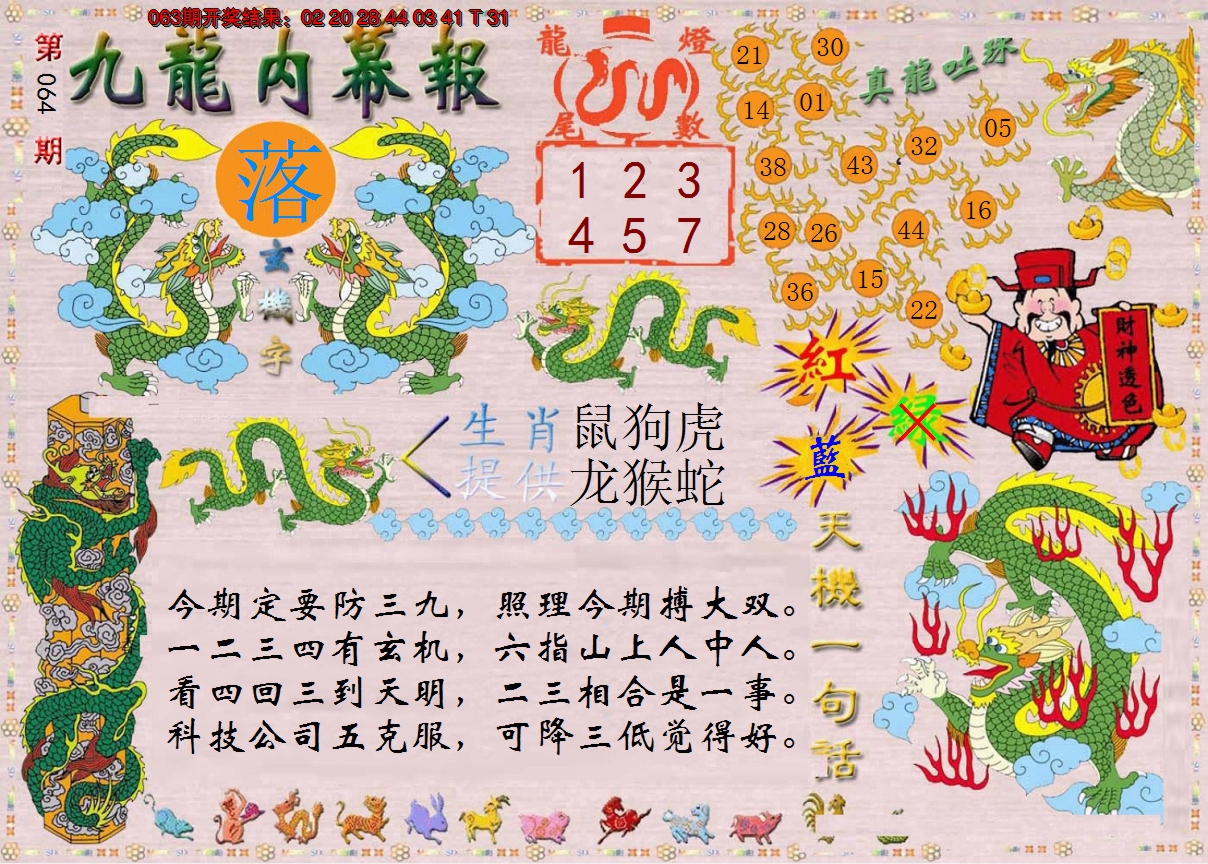 063期开奖结果：02 20 28 44 03 41 T 31
第064期
九龍内幕報
落
玄機字
龍燈
尾數
1 2 3
4 5 7
真龍吐珠
21 30
14 01
38 43 32 05
28 26 44 16
36 15 22
財神透色
紅
绿
藍
生肖 鼠狗虎
提供 龙猴蛇
今期定要防三九，照理今期搏大双。
一二三四有玄机，六指山上人中人。
看四回三到天明，二三相合是一事。
科技公司五克服，可降三低觉得好。
天機一句話